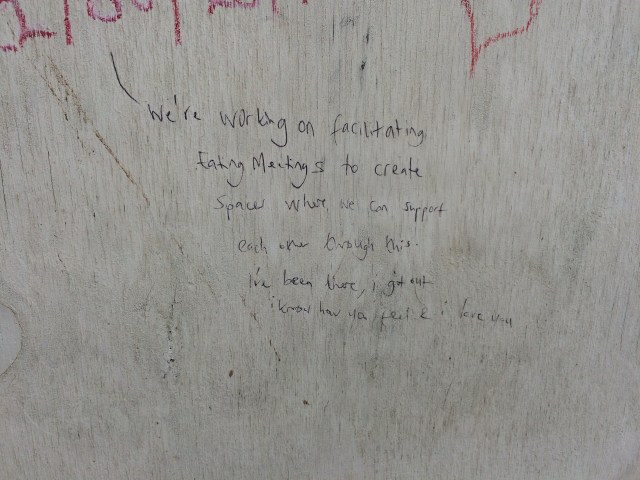 We're working on facilitating
Eating Meetings to create
Spaces where we can support
each other through this.
I've been there, i got out
i know how you feel & i love you